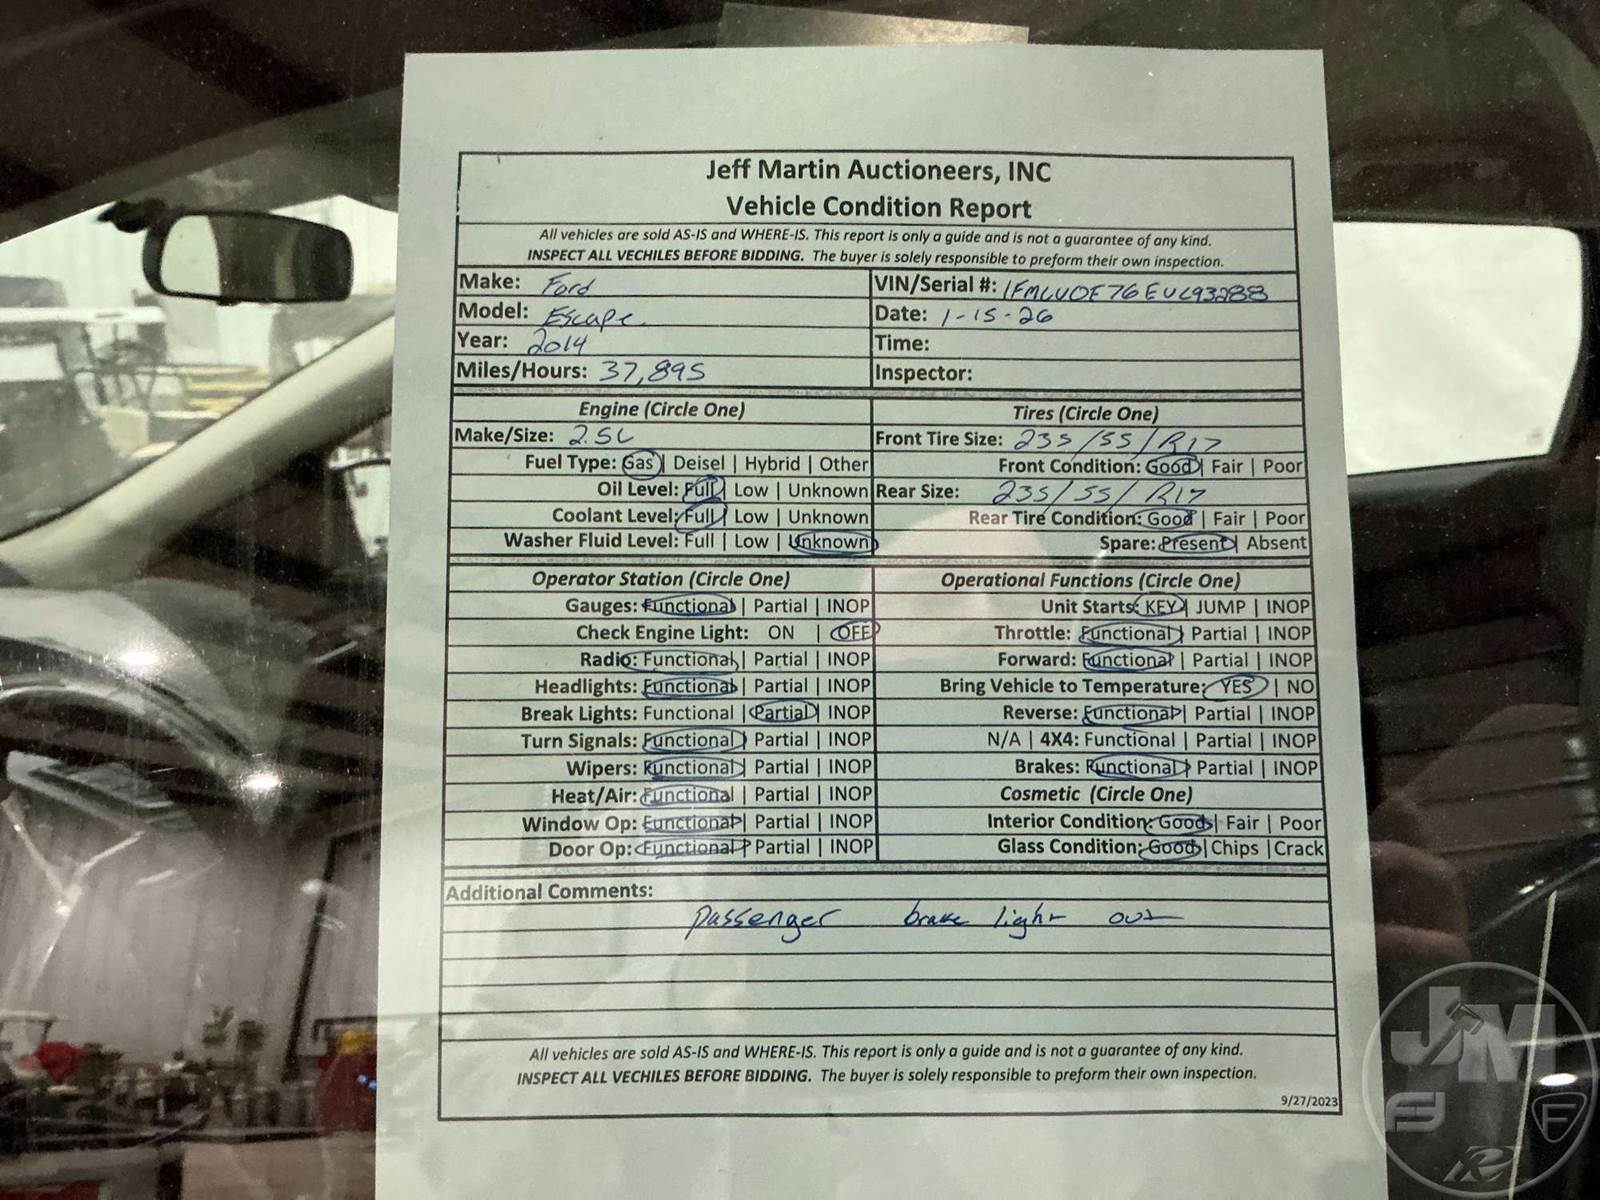 Jeff Martin Auctioneers, INC
Vehicle Condition Report
All vehicles are sold AS-IS and WHERE-IS. This report is only a guide and is not a guarantee of any kind.
INSPECT ALL VECHILES BEFORE BIDDING. The buyer is solely responsible to preform their own inspection.
Make: Ford VIN/Serial #: 1FMCU0F76EUC93288
Model: Escape Date: 1-15-26
Year: 2014 Time:
Miles/Hours: 37,895 Inspector:
Engine (Circle One) Tires (Circle One)
Make/Size: 2.5L Front Tire Size: 235/55/R17
Fuel Type: Gas | Deisel | Hybrid | Other Front Condition: Good | Fair | Poor
Oil Level: Full | Low | Unknown Rear Size: 235/55/R17
Coolant Level: Full | Low | Unknown Rear Tire Condition: Good | Fair | Poor
Washer Fluid Level: Full | Low | Unknown Spare: Present | Absent
Operator Station (Circle One) Operational Functions (Circle One)
Gauges: Functional | Partial | INOP Unit Starts: KEY | JUMP | INOP
Check Engine Light: ON | OFF Throttle: Functional | Partial | INOP
Radio: Functional | Partial | INOP Forward: Functional | Partial | INOP
Headlights: Functional | Partial | INOP Bring Vehicle to Temperature: YES | NO
Break Lights: Functional | Partial | INOP Reverse: Functional | Partial | INOP
Turn Signals: Functional | Partial | INOP N/A | 4X4: Functional | Partial | INOP
Wipers: Functional | Partial | INOP Brakes: Functional | Partial | INOP
Heat/Air: Functional | Partial | INOP Cosmetic (Circle One)
Window Op: Functional | Partial | INOP Interior Condition: Good | Fair | Poor
Door Op: Functional | Partial | INOP Glass Condition: Good | Chips | Crack
Additional Comments:
passenger brake light out
All vehicles are sold AS-IS and WHERE-IS. This report is only a guide and is not a guarantee of any kind.
INSPECT ALL VECHILES BEFORE BIDDING. The buyer is solely responsible to preform their own inspection.
9/27/2023
JM